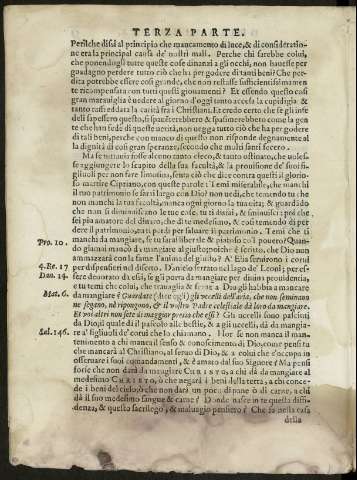 TERZA PARTE.
Perche dissi al principio che mancamento di luce, & di consideratione era la principal causa de' nostri mali. Perche chi sarebbe colui,
che ponendosi tutte queste cose dinanzi a gli occhi, non hauesse per
guadagno perdere tutto ciò che ha per godere di tanti beni? Che perdita
potrebbe essere così grande, che non restasse sufficientissimamente
ricompensata con tutti questi giouamenti? Et essendo questo così
gran marauiglia è uedere al giorno d'oggi tanto accesa la cupidigia &
tanto raffreddata la carità fra i Christiani. Et credo certo che se gl'infedeli
sapessero questo, si spauenterebbero & spasmerebbero come la gente
che han fede di queste uerità, non uegga tutto ciò che ha per godere
di tali beni, perche con manco di questo non risponde degnamente al
la dignità di così gran speranze, secondo che molti santi fecero.
Ma se tuttauia fosse alcuno tanto cieco, & tanto ostinato, che uolesse
aggiungere lo scapito della sua facultà, & la prouisione de' suoi figliuoli
per non fare limosina, senta ciò che dice contra questi il glorioso
martire Cipriano, con queste parole: Temi miserabile, che manchi
il tuo patrimonio se sarai largo con Dio? non uedi, che temendo tu che
non manchi la tua facultà, manca ogni giorno la tua uita; & guardando
che non si diminuiscano le tue cose, tu ti danni, & sminuisci: poi che
sei piu amatore del dinaro, che di te medesimo, & così temendo di perdere
il patrimonio, tu ti perdi per saluare il patrimonio. Temi che ti
manchi da mangiare, se tu sarai liberale & piatoso co'l pouero? Quando
giamai mancò da mangiare al giusto poiche è scritto, che Dio non
Pro. 10.
ammazzarà con la fame l'anima del giusto? A' Elia seruirono i corui
4. Re. 17
per dispensieri nel diserto. Daniel serrato nel lago de' Leoni; per essere
Dan. 14.
deuorato da essi, se gli porta da mangiare per diuina prouidentia,
e tu temi che, operando bene, & seruendo a Dio gli habbia a mancare
Mat. 6.
da mangiare? Guardate (dice egli) gli uccelli dell'aria, che non seminano
ne segano, ne ripongono, & il uostro Padre celestiale dà loro da mangiare.
Et uoi altri non sete di maggior prezzo che essi? Gli uccelli sono pasciuti
da Dio, il quale dà il pascolo alle bestie, & a gli uccelli, dà da mangiare
Sal. 146.
a' figliuoli de' corui che lo chiamano. Hor se non manca il mantenimento
a chi manca il senso & conoscimento di Dio, come pensi tu
che mancarà al Christiano, al seruo di Dio, & a colui che s'occupa in
osseruare i suoi comandamenti, & è amato dal suo Signore? Ma pensi
forse che non darà da mangiare CHRISTO, a chi dà da mangiare al
medesimo CHRISTO, ò che negarà i beni della terra, a chi concede
i beni del cielo, ò che non darà un poco di pane ò di carne, a chi
dà il suo medesimo sangue & carne? Donde nasce in te questa diffidenza,
& questo sacrilego, & maluagio pensiero? Che fa nella casa
della